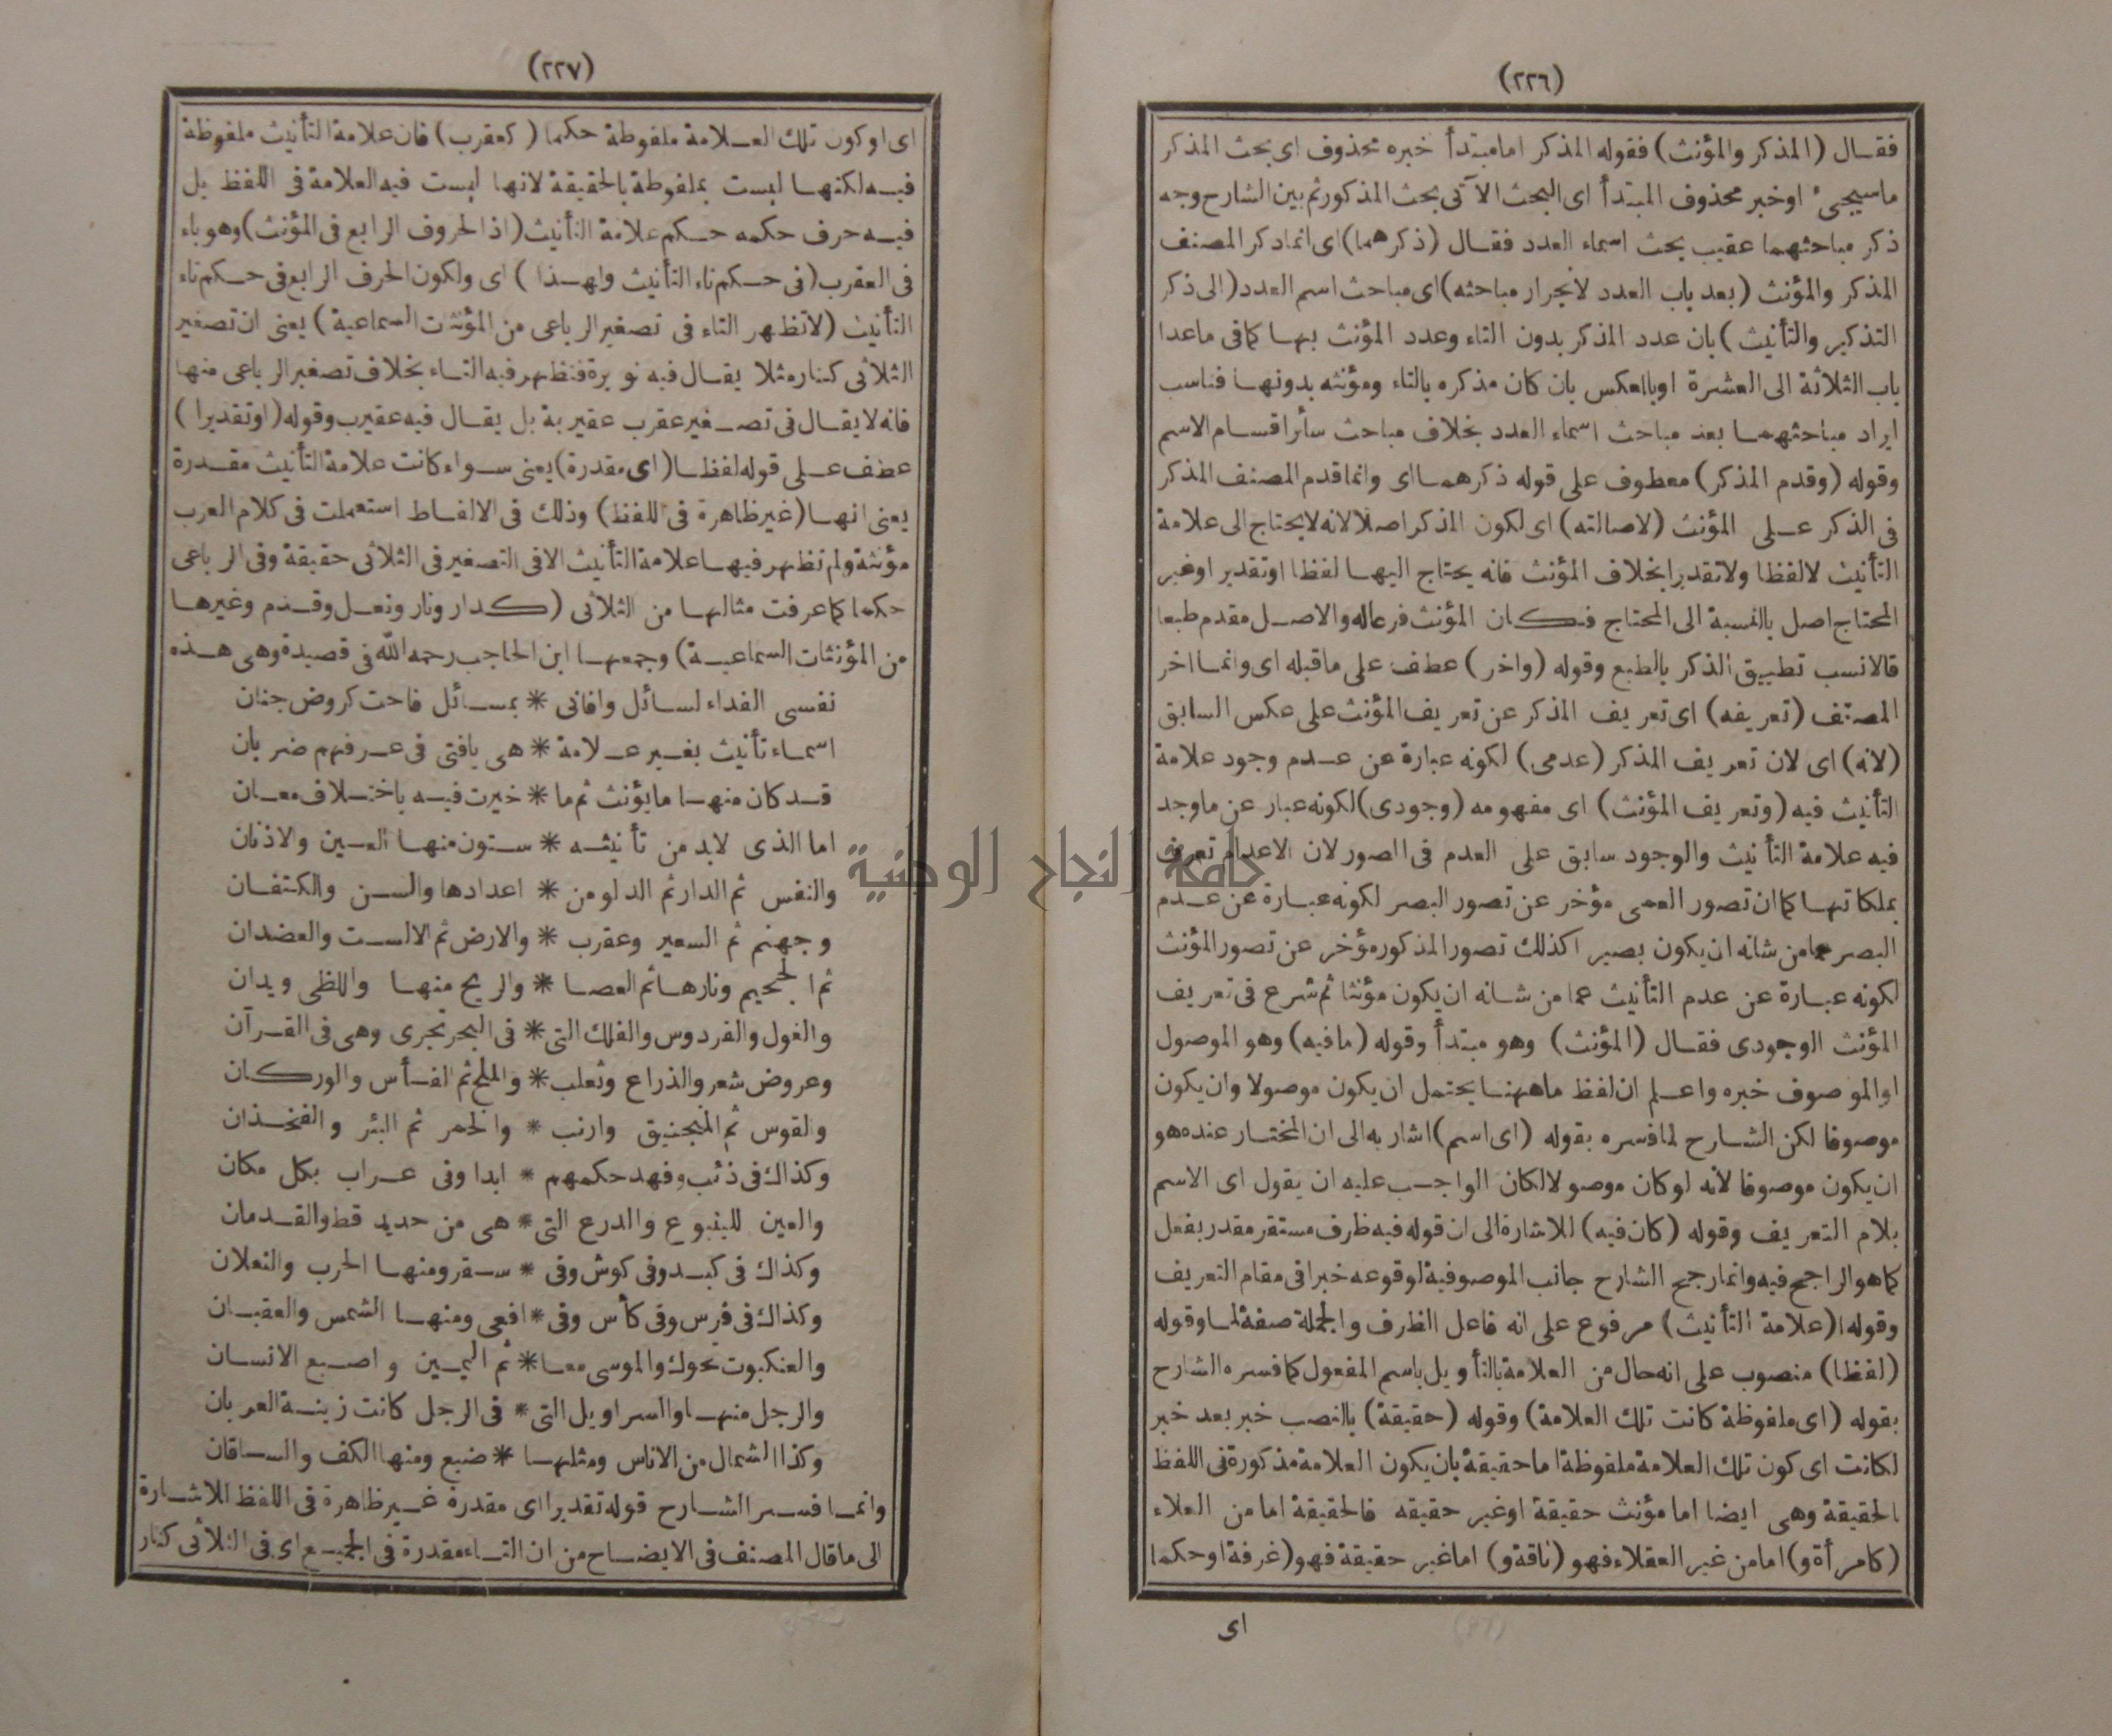 (٢٢٦)
فقال (المذكر والمؤنث) فقوله المذكر اما مبتدأ خبره محذوف اى بحث المذكر
ما سيجىء او خبر محذوف المبتدأ اى البحث الآتى بحث المذكور ثم بين الشارح وجه
ذكر مباحثهما عقيب بحث اسماء العدد فقال (ذكرهما) اى انما ذكر المصنف
المذكر والمؤنث (بعد باب العدد لانجرار مباحثه) اى مباحث اسم العدد (الى ذكر
التذكير والتأنيث) بان عدد المذكر بدون التاء وعدد المؤنث بها كما فى ماعدا
باب الثلاثة الى العشرة او بالعكس بان كان مذكره بالتاء ومؤنثه بدونها فناسب
ايراد مباحثهما بعد مباحث اسماء العدد بخلاف مباحث سائر اقسام الاسم
وقوله (وقدم المذكر) معطوف على قوله ذكرهما اى وانما قدم المصنف المذكر
فى الذكر على المؤنث (لاصالته) اى لكون المذكر اصلا لانه لا يحتاج الى علامة
التأنيث لا لفظا ولا تقديرا بخلاف المؤنث فانه يحتاج اليها لفظا او تقدير او غير
المحتاج اصل بالنسبة الى المحتاج فكان المؤنث فرعا له والاصل مقدم طبعا
فالانسب تطبيق الذكر بالطبع وقوله (واخر) عطف على ماقبله اى وانما اخر
المصنف (تعريفه) اى تعريف المذكر عن تعريف المؤنث على عكس السابق
(لانه) اى لان تعريف المذكر (عدمى) لكونه عبارة عن عدم وجود علامة
التأنيث فيه (وتعريف المؤنث) اى مفهومه (وجودى) لكونه عبار عن ماوجد
فيه علامة التأنيث والوجود سابق على العدم فى الصور لان الاعدام تعرف
بملكاتها كما ان تصور العمى مؤخر عن تصور البصر لكونه عبارة عن عدم
البصر عما من شانه ان يكون بصير اكذلك تصور المذكور مؤخر عن تصور المؤنث
لكونه عبارة عن عدم التأنيث عما من شانه ان يكون مؤنثا ثم شرع فى تعريف
المؤنث الوجودى فقال (المؤنث) وهو مبتدأ وقوله (مافيه) وهو الموصول
او الموصوف خبره واعلم ان لفظ ما ههنا يحتمل ان يكون موصولا وان يكون
موصوفا لكن الشارح لما فسره بقوله (اى اسم) اشار به الى ان المختار عنده هو
ان يكون موصوفا لانه لو كان موصولا لكان الواجب عليه ان يقول اى الاسم
بلام التعريف وقوله (كان فيه) للاشارة الى ان قوله فيه ظرف مستقر مقدر بفعل
كما هو الراجح فيه وانما رجح الشارح جانب الموصوفية لوقوعه خبرا فى مقام التعريف
وقوله (علامة التأنيث) مرفوع على انه فاعل الظرف والجملة صفة لما وقوله
(لفظا) منصوب على انه حال من العلامة بالتأويل باسم المفعول كما فسره الشارح
بقوله (اى ملفوظة كانت تلك العلامة) وقوله (حقيقة) بالنصب خبر بعد خبر
لكانت اى كون تلك العلامة ملفوظة اما حقيقة بان يكون العلامة مذكورة فى اللفظ
الحقيقة وهى ايضا اما مؤنث حقيقة او غير حقيقه فالحقيقة اما من العلاء
(كامرأة و) اما من غير العقلاء فهو (ناقة و) اما غير حقيقة فهو (غرفة او حكما)
اى
(٢٢٧)
اى او كون تلك العلامة ملفوظة حكما (كعقرب) فان علامة التأنيث ملفوظة
فيه لكنها ليست بملفوظة بالحقيقة لانها ليست فيه العلامة فى اللفظ بل
فيه حرف حكمه حكم علامة التأنيث (اذ الحروف الرابع فى المؤنث) وهو باء
فى العقرب (فى حكم تاء التأنيث ولهذا) اى ولكون الحرف الرابع فى حكم تاء
التأنيث (لا تظهر التاء فى تصغير الرباعى من المؤنثات السماعية) يعنى ان تصغير
الثلاثى كنار مثلا يقال فيه نويرة فتظهر فيه التاء بخلاف تصغير الرباعى منها
فانه لا يقال فى تصغير عقرب عقيربة بل يقال فيه عقيرب وقوله (او تقديرا)
عطف على قوله لفظا (اى مقدرة) يعنى سواء كانت علامة التأنيث مقدرة
يعنى انها (غير ظاهرة فى اللفظ) وذلك فى الالفاط استعملت فى كلام العرب
مؤنثة ولم تظهر فيها علامة التأنيث الا فى التصغير فى الثلاثى حقيقة وفى الرباعى
حكما كما عرفت مثالها من الثلاثى (كدار ونار ونعل وقدم وغيرها
من المؤنثات السماعية) وجمعها ابن الحاجب رحمه الله فى قصيدة وهى هذه
نفسى الفداء لسائل وافانى * بمسائل فاحت كروض جنان
اسماء تأنيث بغير علامة * هى يافتى فى عرفهم ضربان
قد كان منها ما يؤنث ثم ما * خيرت فيه باختلاف معان
اما الذى لابد من تأنيثه * ستون منها العين والاذنان
والنفس ثم الدار ثم الدلو من * اعدادها والسن والكتفان
وجهنم ثم السعير وعقرب * والارض ثم الالست والعضدان
ثم الجحيم ونارها ثم العصا * والريح منها واللظى ويدان
والغول والفردوس والفلك التى * فى البحر تجرى وهى فى القرآن
وعروض شعر والذراع وثعلب * والملح ثم الفأس والوركان
والقوس ثم المنجنيق وارنب * والخمر ثم البئر والفخذان
وكذاك فى ذئب وفهد حكمهم * ابدا وفى عراب بكل مكان
والعين للينبوع والدرع التى * هى من حديد قط والقدمان
وكذاك فى كبد وفى كوش وفى * سقر ومنها الحرب والنعلان
وكذاك فى فرس وفى كأس وفى * افعى ومنها الشمس والعقبان
والعنكبوت تحوك والموسى معا * ثم اليمين واصبع الانسان
والرجل منها والسراويل التى * فى الرجل كانت زينة العريان
وكذا الشمال من الاناس ومثلها * ضبع ومنها الكف والساقان
وانما فسر الشارح قوله تقديرا اى مقدرة غير ظاهرة فى اللفظ للاشارة
الى ما قال المصنف فى الايضاح من ان التاء مقدرة فى الجميع اى فى الثلاثى كنار
جامعة النجاح الوطنية